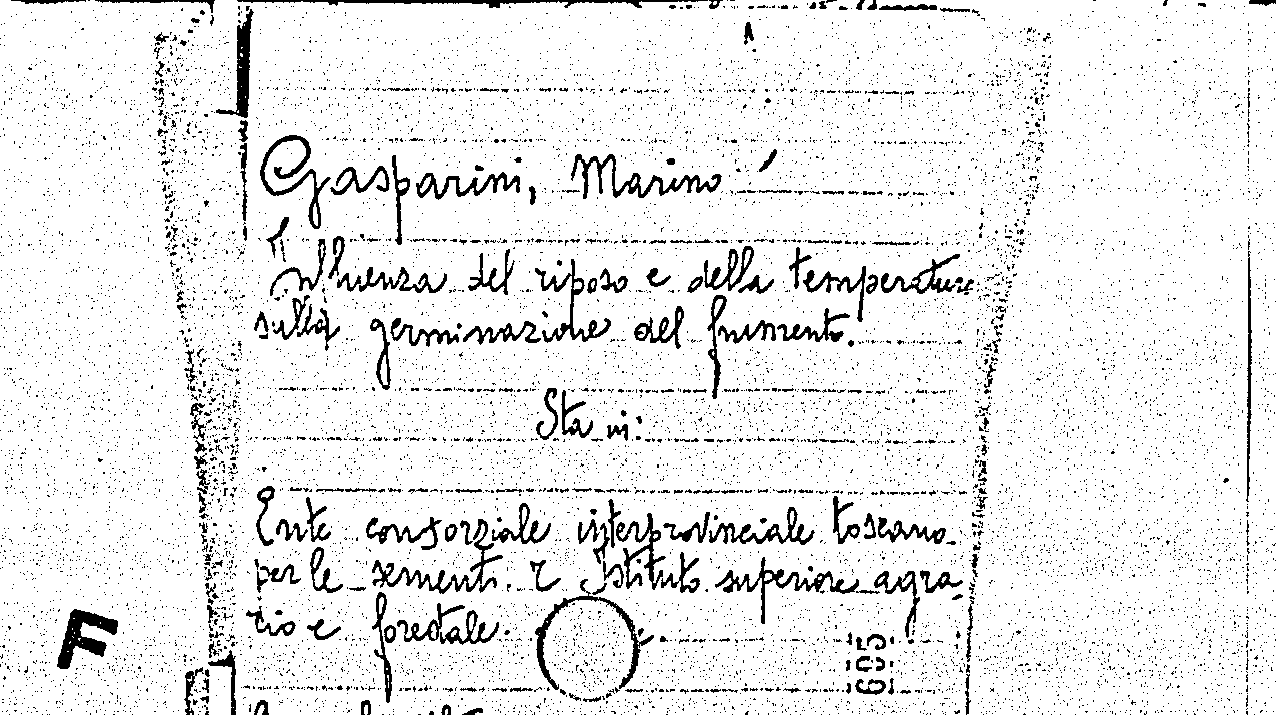 Gasparini, Marino
Influenza del riposo e della temperatura
sulla germinazione del frumento.
Sta in:
Ente consorziale interprovinciale toscano
per le sementi. R Istituto superiore agra-
rio e forestale.
605
F